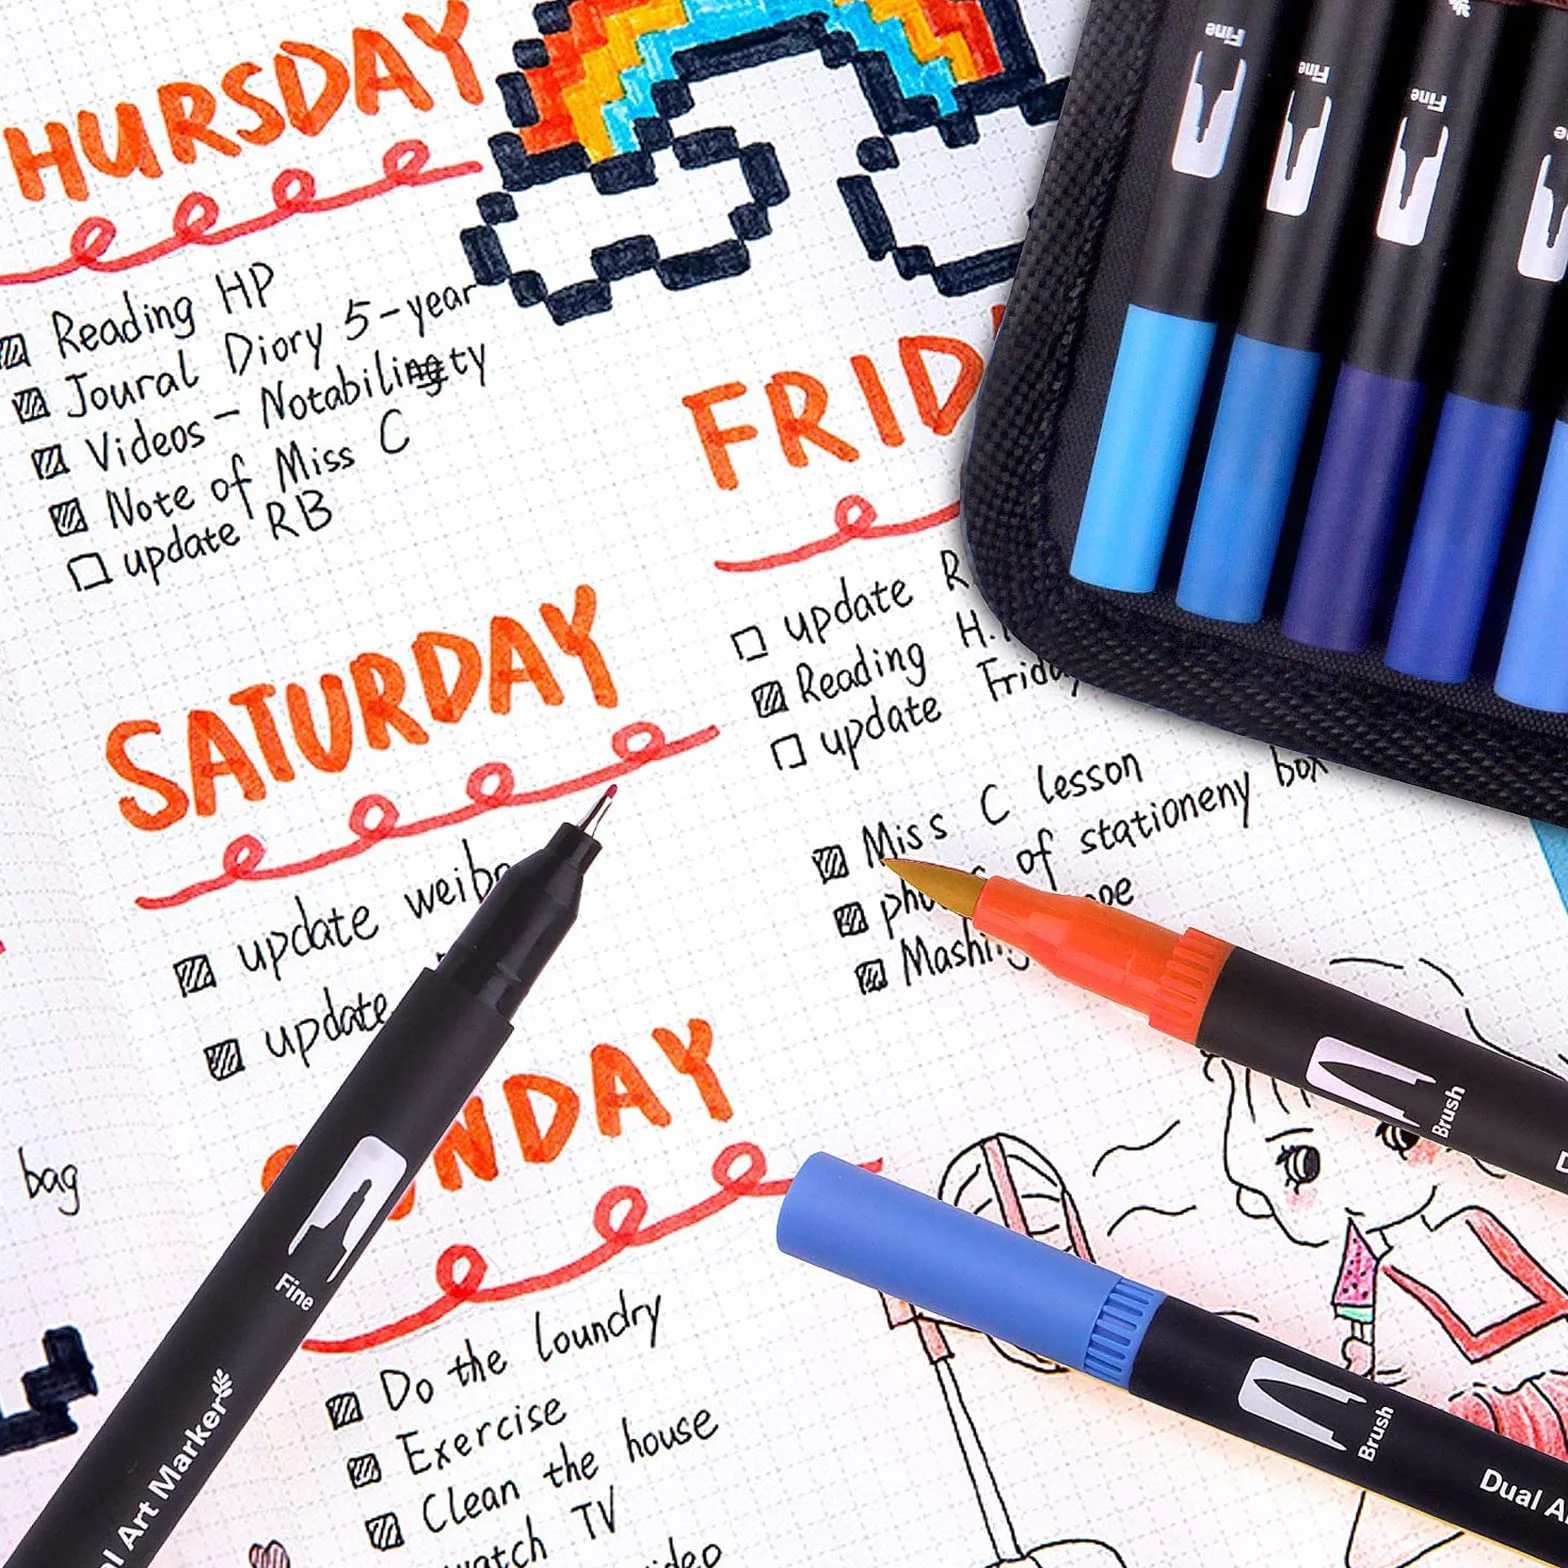 HURSDAY
Reading HP
Joural Diory 5-year
Videos - Notability
Note of Miss C
update RB
FRID
update R.
Reading H.
update Friday
Miss C lesson
of stationeny box
Mashing
SATURDAY
update weibo
update
NDAY
Do the loundry
Exercise
Clean the house
watch TV
video
bag
Fine
Fine
Fine
Fine
Art Marker
Brush
Brush
Dual A